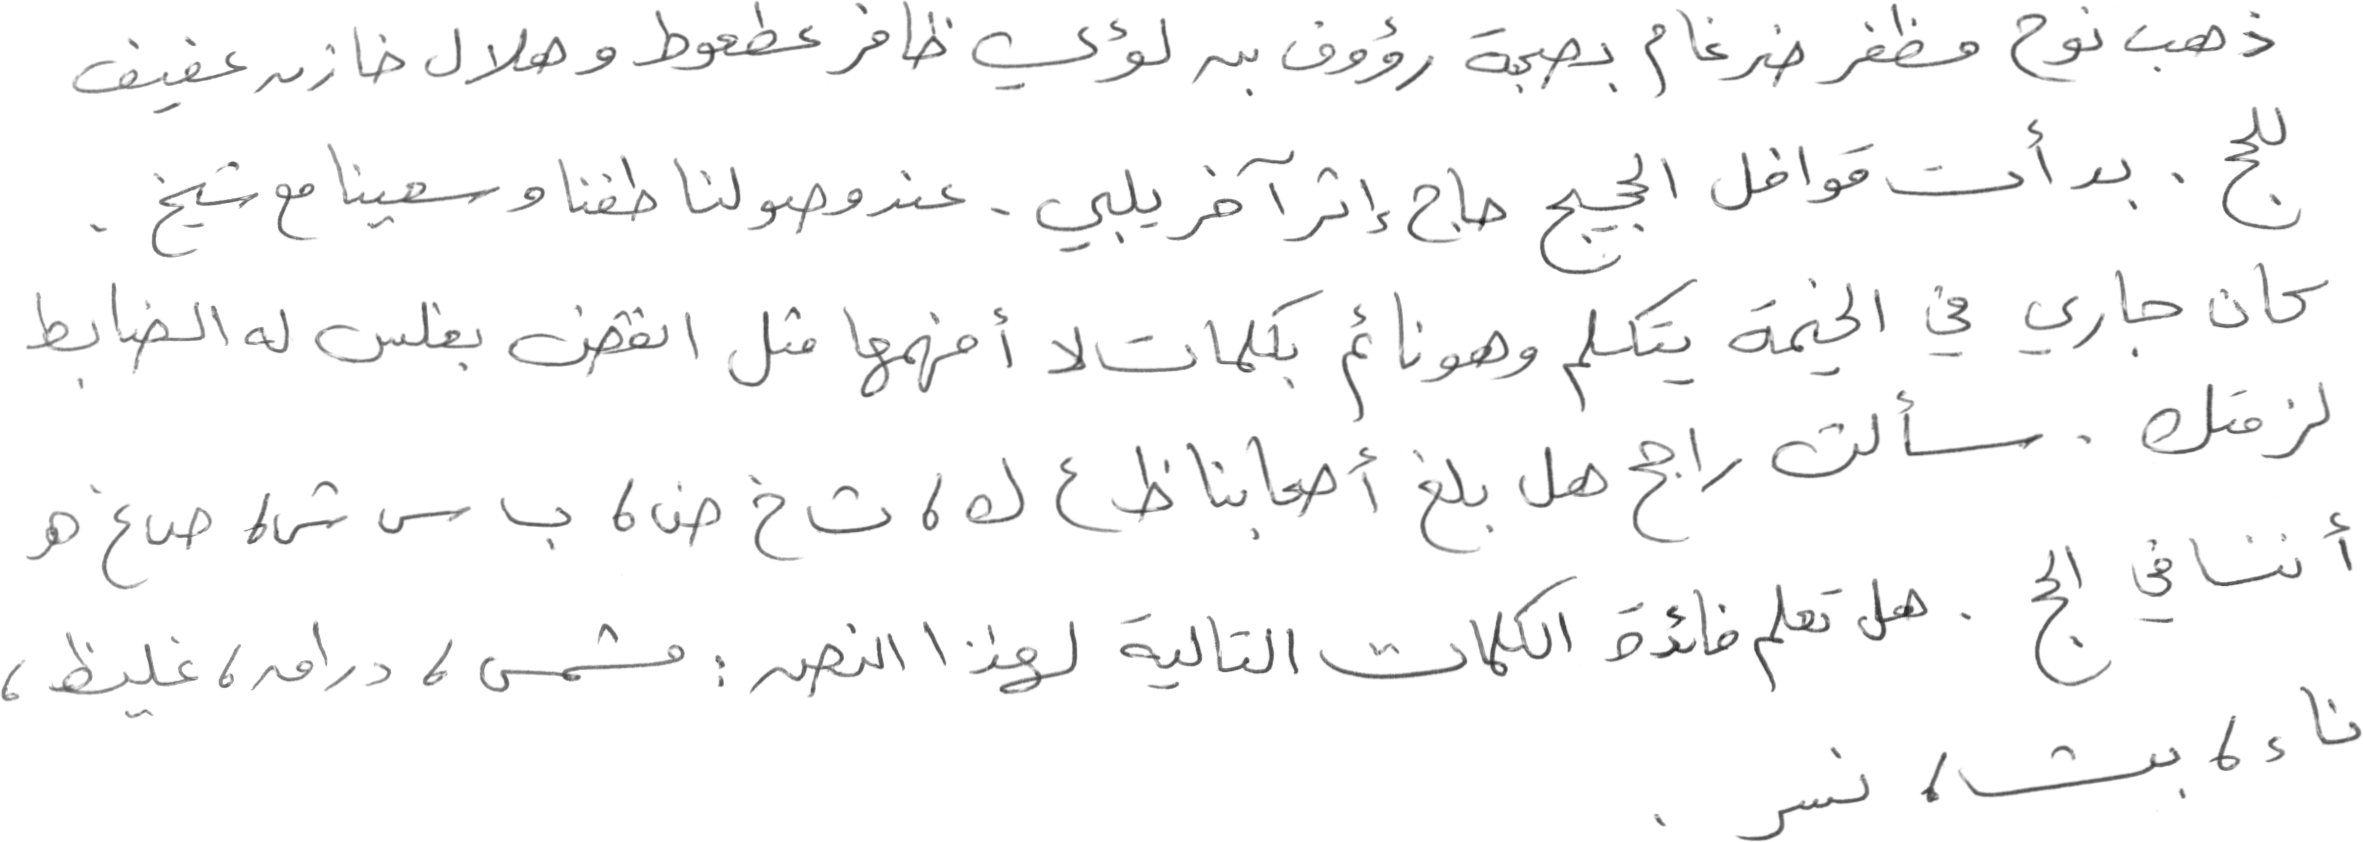 ذهب نوح مظفر ضرغام بصحبة رؤوف بن لؤي ظافر عطعوط و هلال خازن عفيف
للحج . بدأت قوافل الحجيج حاج إثر آخر يلبي . عند وصولنا طفنا و سعينا مع شيخ .
كان جاري في الخيمة يتكلم وهو نائم بكلمات لا أفهمها مثل انقض بغلس له الضابط
لزمتك . سألت راجح هل بلغ أصحابنا ظ ع ك ، ث خ ض ، ب س ش ، ص غ هـ
أننا في الحج . هل تعلم فائدة الكلمات التالية لهذا النص : مشمس ، درامه ، غليظ ،
ناء ، بث ، نسر .